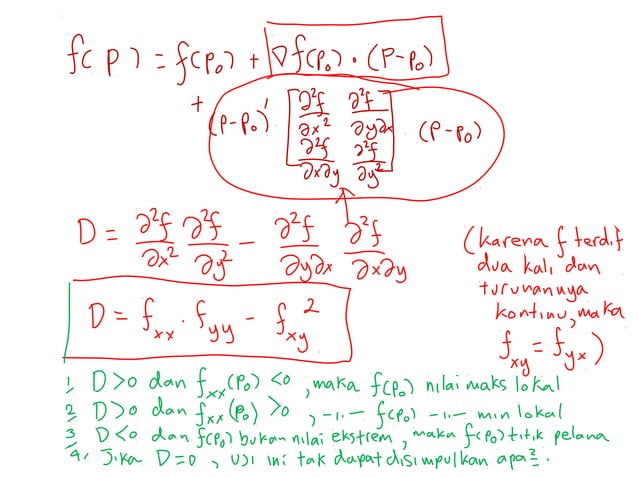 f(p) = f(p₀) + ∇f(p₀) · (p-p₀)
+ (p-p₀)' [∂²f/∂x² ∂²f/∂y∂x
∂²f/∂x∂y ∂²f/∂y²] (p-p₀)
D = ∂²f/∂x² ∂²f/∂y² - ∂²f/∂y∂x ∂²f/∂x∂y
(karena f terdif
dua kali dan
turunannya
kontinu, maka
f_xy = f_yx)
D = f_xx · f_yy - f_xy²
1. D>0 dan f_xx(p₀) <0, maka f(p₀) nilai maks lokal
2. D>0 dan f_xx(p₀) >0, -ıı- f(p₀) -ıı- min lokal
3. D<0 dan f(p₀) bukan nilai ekstrem, maka f(p₀) titik pelana
4. Jika D=0, uji ini tak dapat disimpulkan apa².